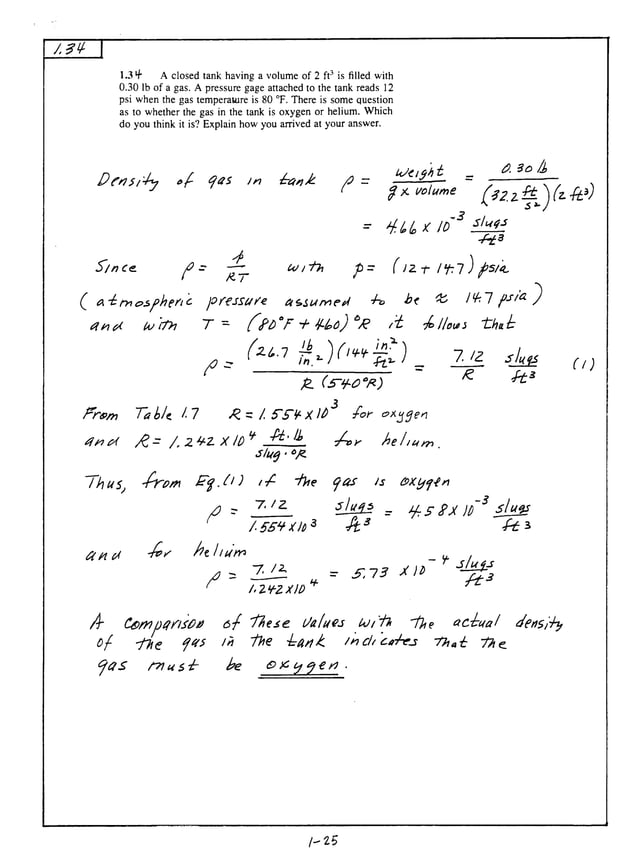 1.34
1.34 A closed tank having a volume of 2 ft³ is filled with
0.30 lb of a gas. A pressure gage attached to the tank reads 12
psi when the gas temperature is 80 °F. There is some question
as to whether the gas in the tank is oxygen or helium. Which
do you think it is? Explain how you arrived at your answer.
Density of gas in tank ρ = weight / (g x volume) = 0.30 lb / ((32.2 ft/s²)(2 ft³))
= 4.66 x 10⁻³ slugs/ft³
Since ρ = p/RT with p = (12 + 14.7) psia
(atmospheric pressure assumed to be ≈ 14.7 psia)
and with T = (80°F + 460)°R it follows that
ρ = (26.7 lb/in.²)(144 in.²/ft²) / R(540°R) = 7.12/R slugs/ft³ (1)
From Table 1.7 R = 1.554 x 10³ for oxygen
and R = 1.242 x 10⁴ ft·lb/slug·°R for helium.
Thus, from Eq.(1) if the gas is oxygen
ρ = 7.12/1.554x10³ slugs/ft³ = 4.58 x 10⁻³ slugs/ft³
and for helium
ρ = 7.12/1.242x10⁴ = 5.73 x 10⁻⁴ slugs/ft³
A comparison of these values with the actual density
of the gas in the tank indicates that the
gas must be oxygen.
1-25